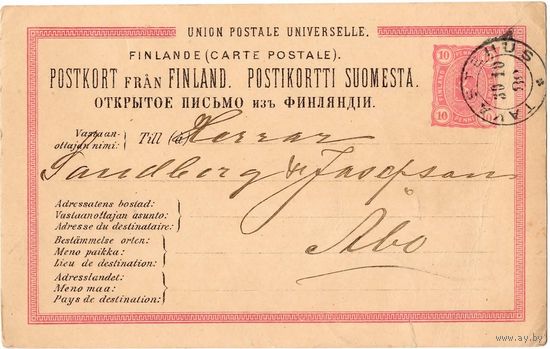 UNION POSTALE UNIVERSELLE.
FINLANDE (CARTE POSTALE).
POSTKORT FRÅN FINLAND. POSTIKORTTI SUOMESTA.
ОТКРЫТОЕ ПИСЬМО изъ ФИНЛЯНДІИ.
10 10
10 PENNI 10
TAVASTEHUS
Vastaan-
ottajan nimi:
Till (à) Herrar
Sandberg & Josefsson
Adressatens bostad:
Vastaanottajan asunto:
Adresse du destinataire:
Åbo
Bestämmelse orten:
Meno paikka:
Lieu de destination:
Adresslandet:
Meno maa:
Pays de destination:
www.ay.by